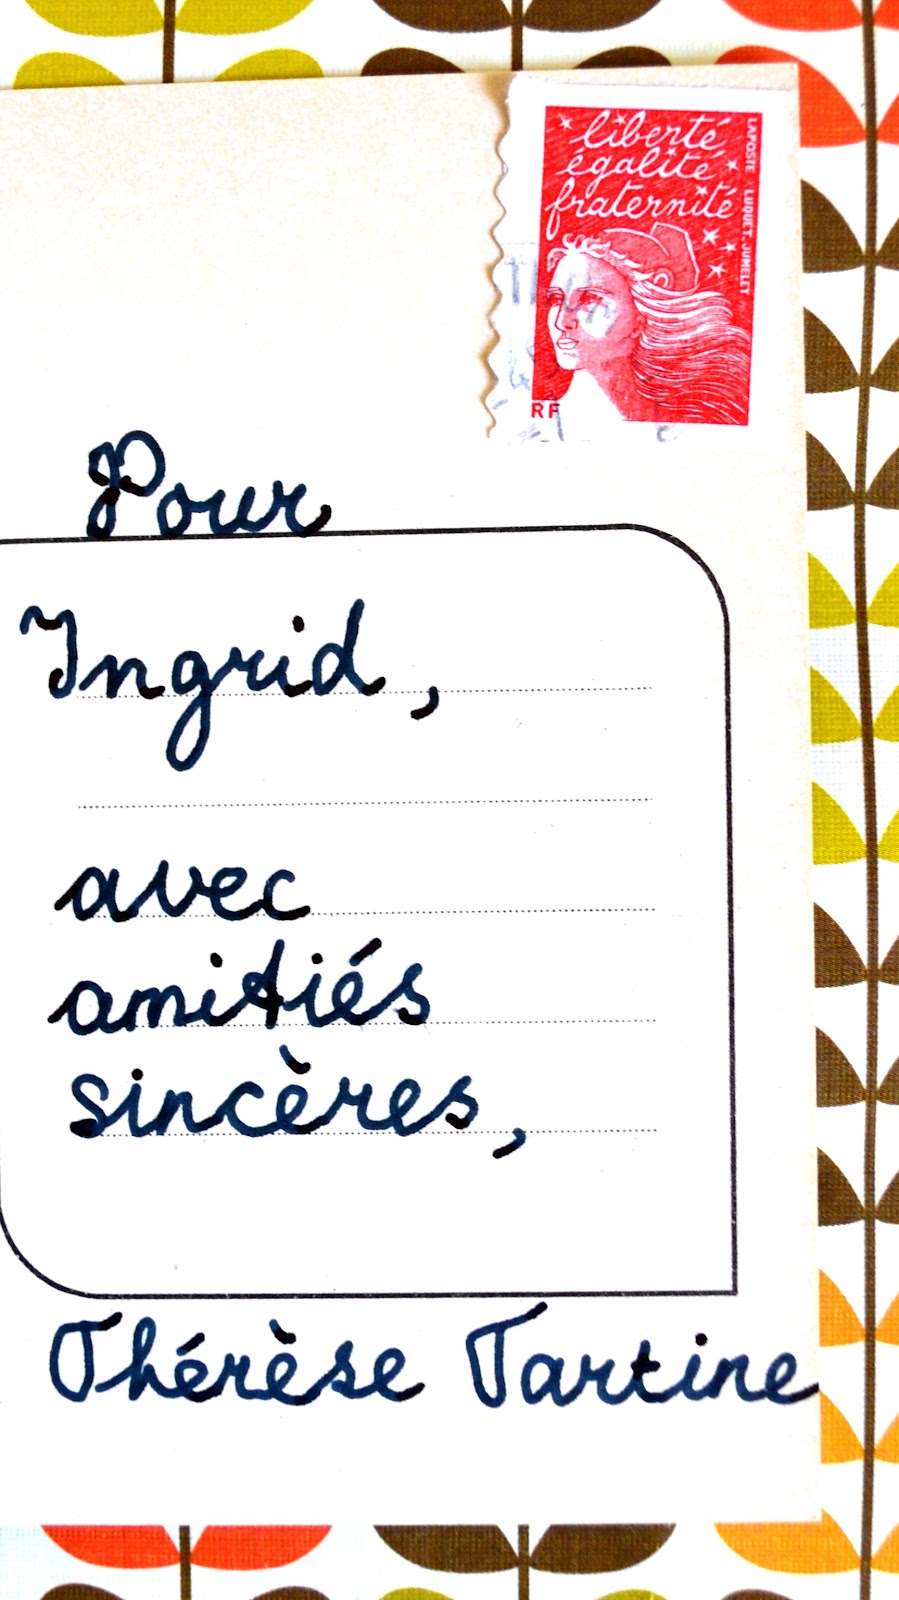 liberté
égalité
fraternité
LAPOSTE LUQUET-JUMELET
RF
Pour
Ingrid,
avec
amitiés
sincères,
Thérèse Tartine